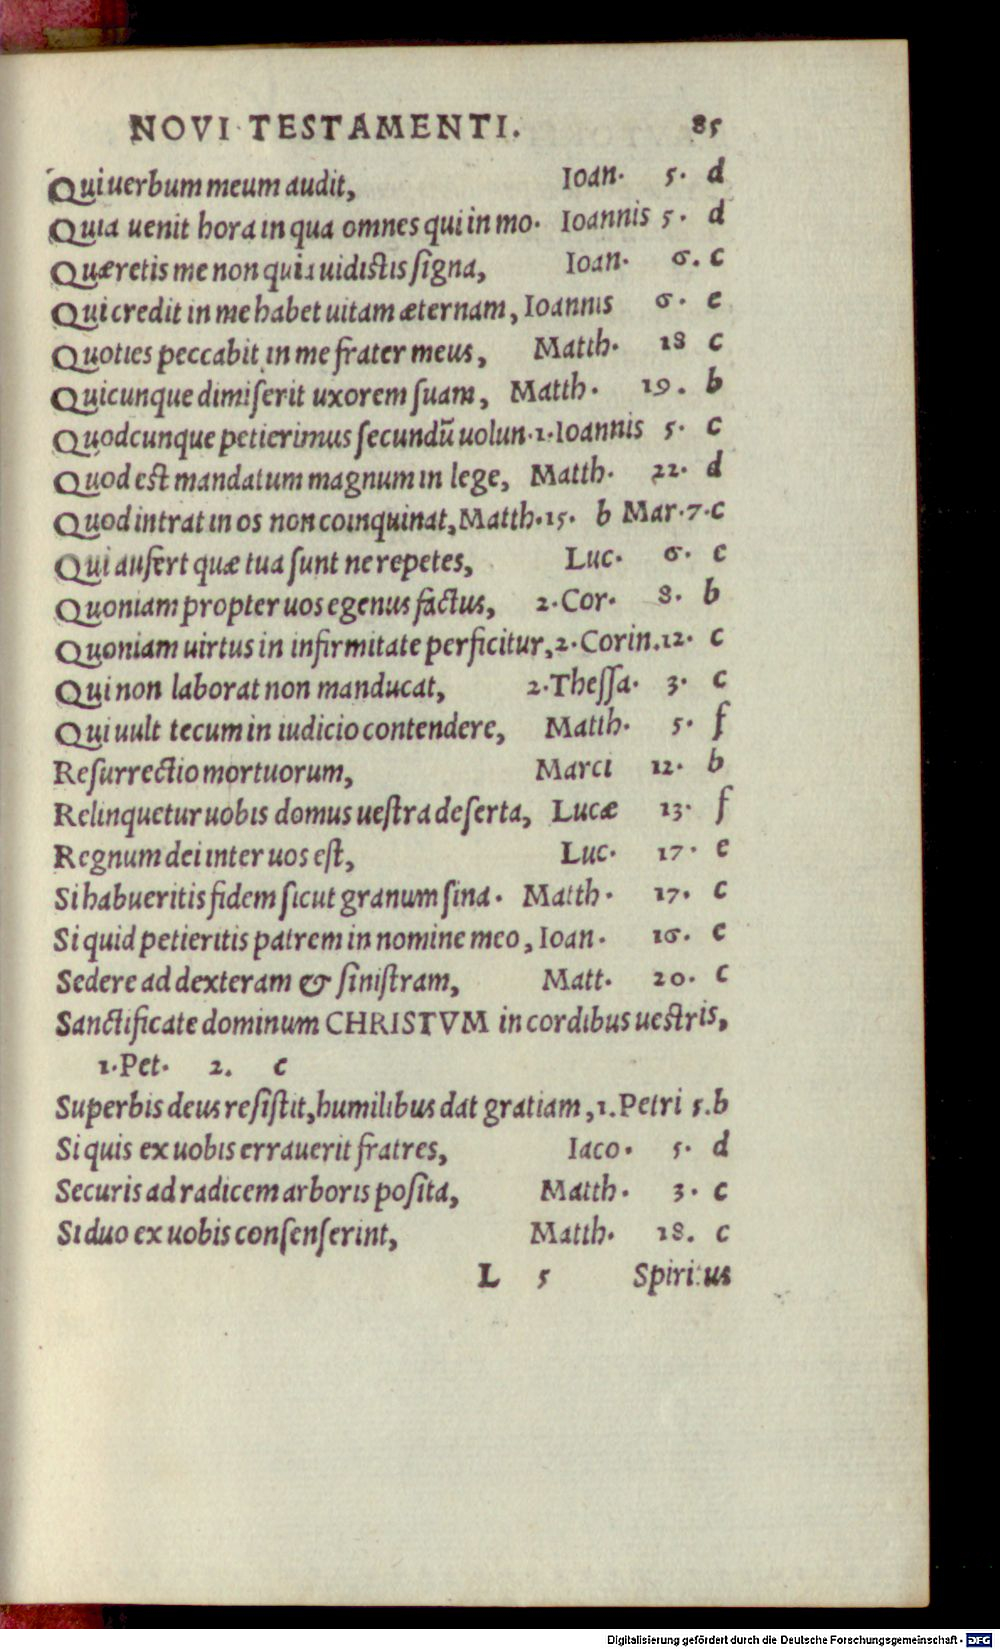 NOVI TESTAMENTI. 85
Qui uerbum meum audit, Ioan. 5. d
Quia uenit hora in qua omnes qui in mo. Ioannis 5. d
Quæretis me non quia uidistis signa, Ioan. 6. c
Qui credit in me habet uitam æternam, Ioannis 6. e
Quoties peccabit in me frater meus, Matth. 18 c
Quicunque dimiserit uxorem suam, Matth. 19. b
Quodcunque petierimus secundū uolun. 1. Ioannis 5. c
Quod est mandatum magnum in lege, Matth. 22. d
Quod intrat in os non coinquinat, Matth. 15. b Mar. 7. c
Qui aufert quæ tua sunt ne repetes, Luc. 6. c
Quoniam propter uos egenus factus, 2. Cor. 8. b
Quoniam uirtus in infirmitate perficitur, 2. Corin. 12. c
Qui non laborat non manducat, 2. Thessa. 3. c
Qui uult tecum in iudicio contendere, Matth. 5. f
Resurrectio mortuorum, Marci 12. b
Relinquetur uobis domus uestra deserta, Lucæ 13. f
Regnum dei inter uos est, Luc. 17. e
Si habueritis fidem sicut granum sina. Matth. 17. c
Si quid petieritis patrem in nomine meo, Ioan. 16. c
Sedere ad dexteram & sinistram, Matt. 20. c
Sanctificate dominum CHRISTVM in cordibus uestris,
1. Pet. 2. c
Superbis deus resistit, humilibus dat gratiam, 1. Petri 5. b
Si quis ex uobis errauerit fratres, Iaco. 5. d
Securis ad radicem arboris posita, Matth. 3. c
Si duo ex uobis consenserint, Matth. 18. c
L 5 Spiritus
Digitalisierung gefördert durch die Deutsche Forschungsgemeinschaft - DFG